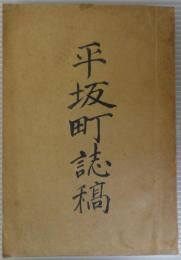 平坂町誌稿